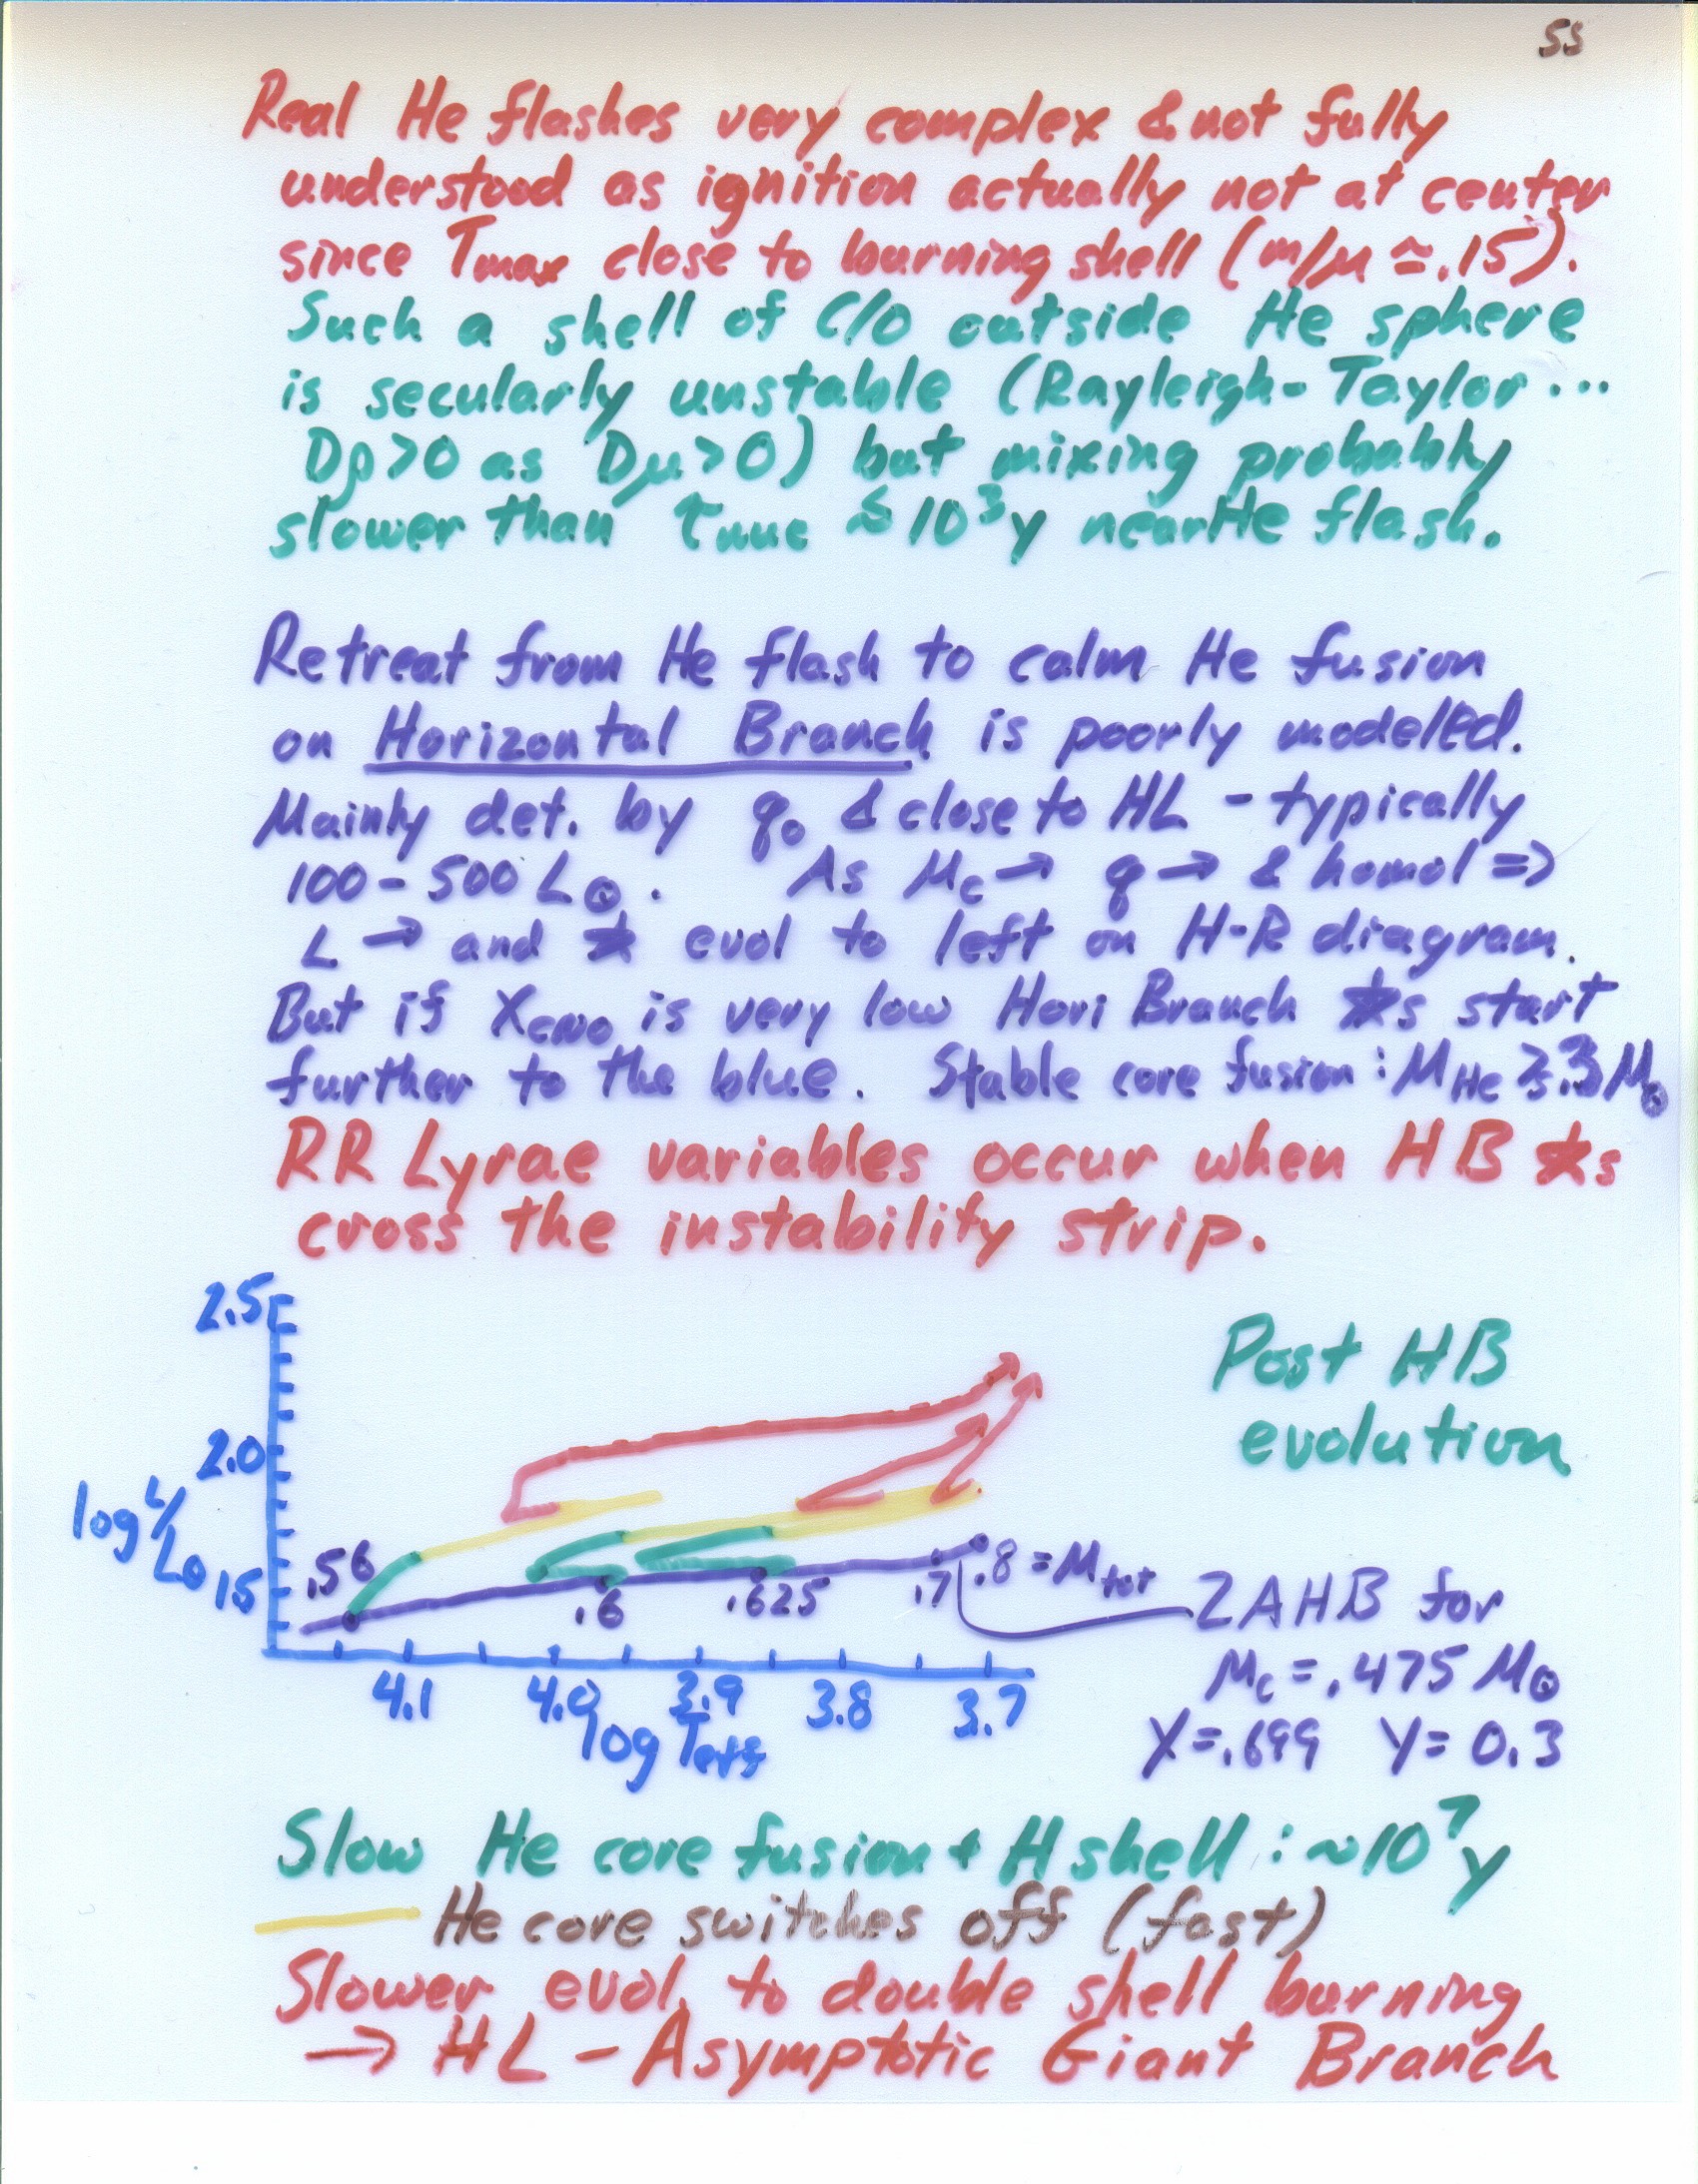 55
Real He flashes very complex & not fully
understood as ignition actually not at center
since Tmax close to burning shell (m/M ≃ .15).
Such a shell of C/O outside He sphere
is secularly unstable (Rayleigh-Taylor...
Dρ>0 as Dμ>0) but mixing probably
slower than τnuc ≲ 10³y near He flash.
Retreat from He flash to calm He fusion
on Horizontal Branch is poorly modelled.
Mainly det. by q₀ & close to HL - typically
100-500 L⊙. As Mc → q → & homol ⇒
L → and ★ evol to left on H-R diagram.
But if XCNO is very low Hori Branch ★s start
further to the blue. Stable core fusion: MHe ≳ .3 M⊙
RR Lyrae variables occur when HB ★s
cross the instability strip.
2.5
Post HB
evolution
2.0
log L/L⊙
.56
15
.6
.625
.7
.8 = Mtot
ZAHB for
Mc = .475 M⊙
X=.699 Y= 0.3
4.1 4.0 3.9 3.8 3.7
log Teff
Slow He core fusion + H shell: ~10⁷y
He core switches off (fast)
Slower evol. to double shell burning
→ HL - Asymptotic Giant Branch